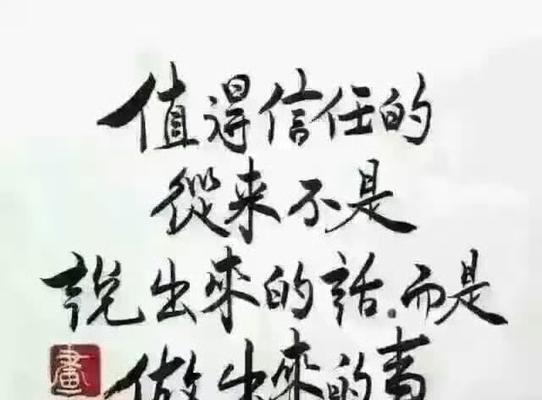 值得信任的
從来不是
說出來的話.而是
做出來的事
畫